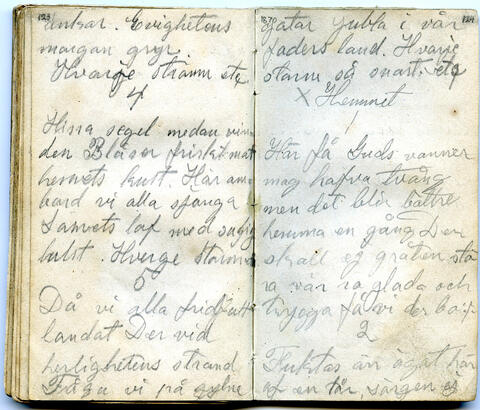 123
ankar. Evighetens
morgan gryr.
Hvarje stamm etc
4
Hissa segel medan vin
den Blåser friskt mot
hemets kust. Här am
bord vi alla sjunga
Lamets lof med
lust. Hvarje stamm
5
Då vi alla
landat Der vid
herlighetens strand
Fråga vi på
124
gatar Jubla i vår
faders land. Hvarje
starm så snart. etc
X Hemmet
1
Här få Guds vänner
mag hafva tvång
men det blir bättre
hemma en gång Der
skall ej gråten stö
ra vår ro glada och
trygga få vi der bo
2
Fluktas än ögat här
af en tår, sargen ej